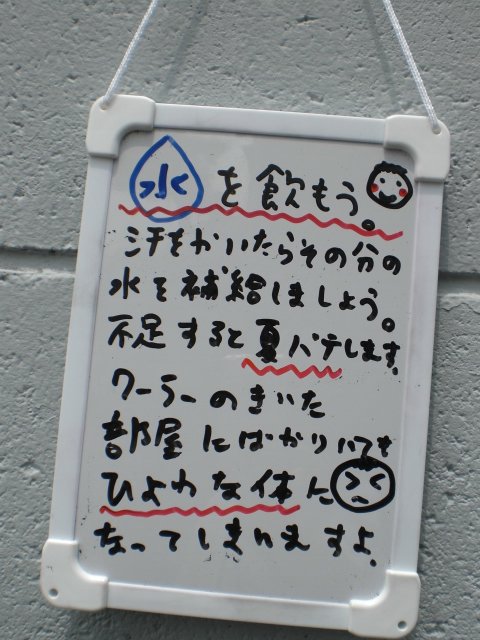 水を飲もう。
汗をかいたらその分の
水を補給しましょう。
不足すると夏バテします。
クーラーのきいた
部屋にばかりいても
ひよわな体に
なってしまいますよ。